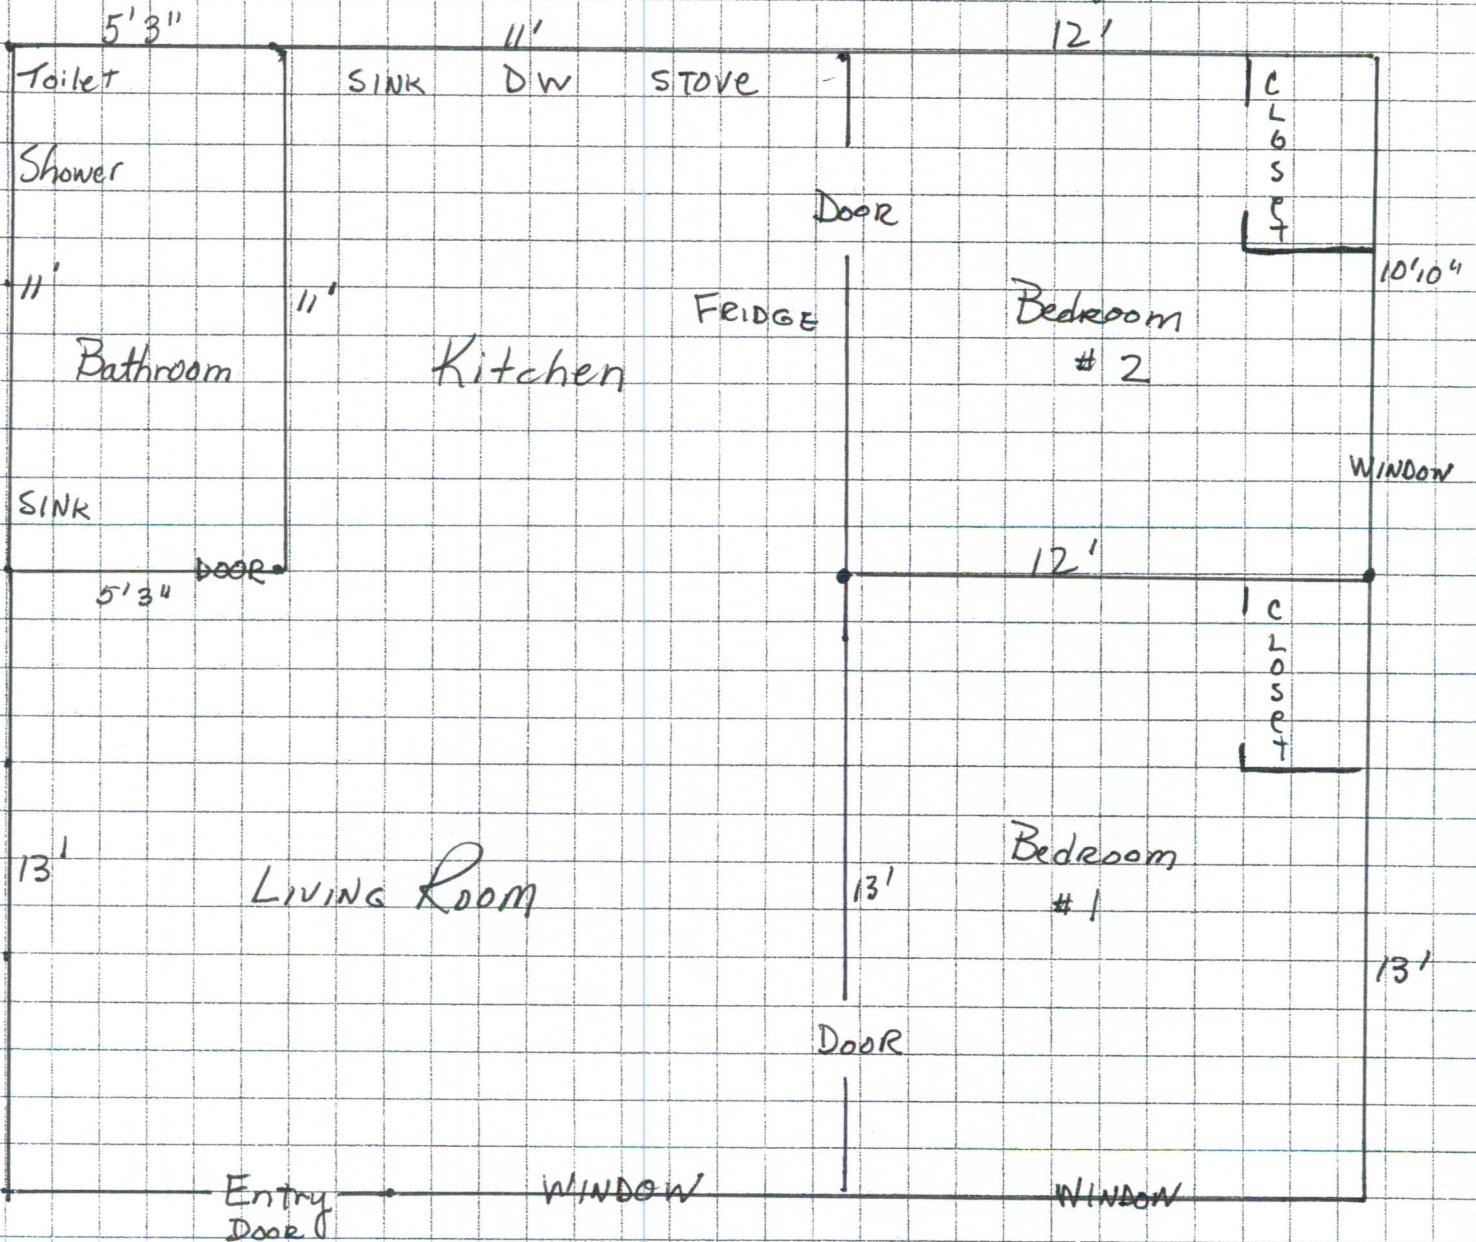 5'3" 11' 12'
Toilet SINK DW STOVE
Shower
DOOR
C
L
O
S
e
t
11' 11' 10'10"
FRIDGE
Bedroom
# 2
Bathroom Kitchen
WINDOW
SINK
DOOR
5'3"
12'
C
L
O
S
e
t
13'
Living Room
13'
Bedroom
# 1
13'
DOOR
Entry
DOOR
WINDOW
WINDOW